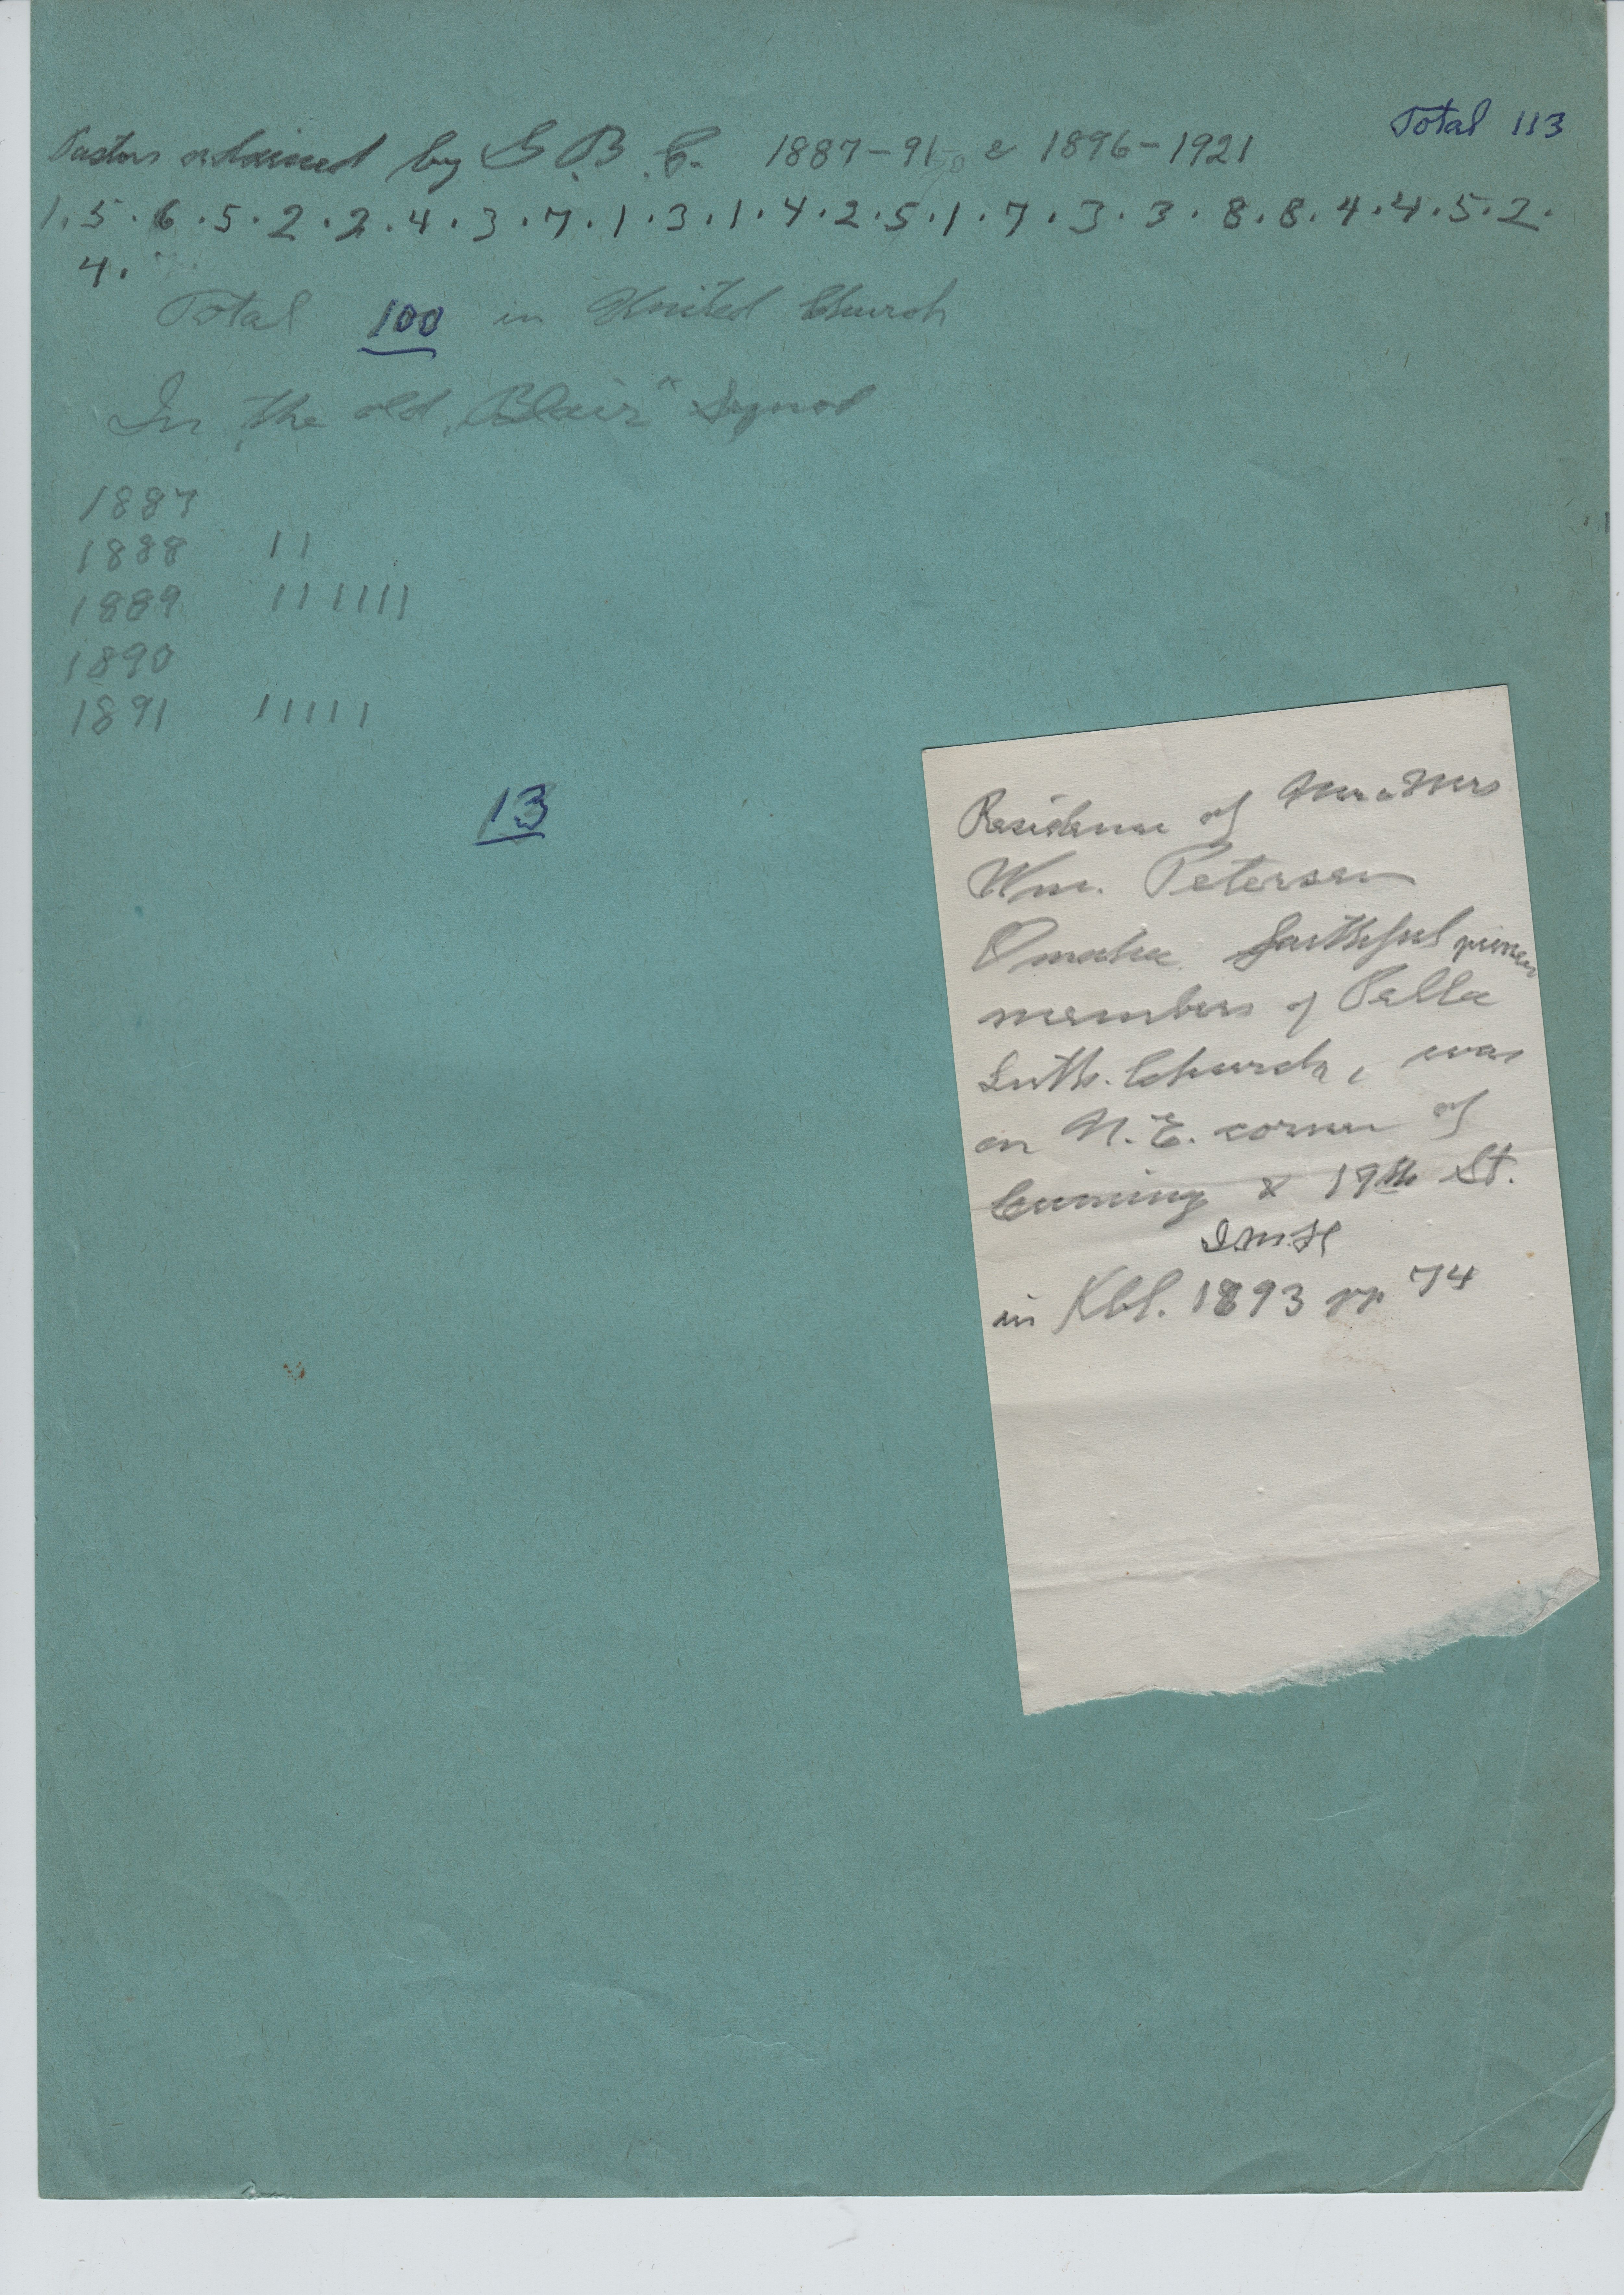 Total 113
Pastors ordained by G.B.C. 1887-91 & 1896-1921
1.5.6.5.2.2.4.3.7.1.3.1.4.2.5.1.7.3.3.8.8.4.4.5.2.
4.
Total 100 in United Church
In the old "Blair" Synod
1887
1888 11
1889 111111
1890
1891 11111
13
Residence of Mr & Mrs
Wm. Petersen
Omaha faithful pioneer
members of Pella
Luth. Church, was
on N.E. corner of
Cuming & 19th St.
I.M.H
in Kbl. 1893 pp 74